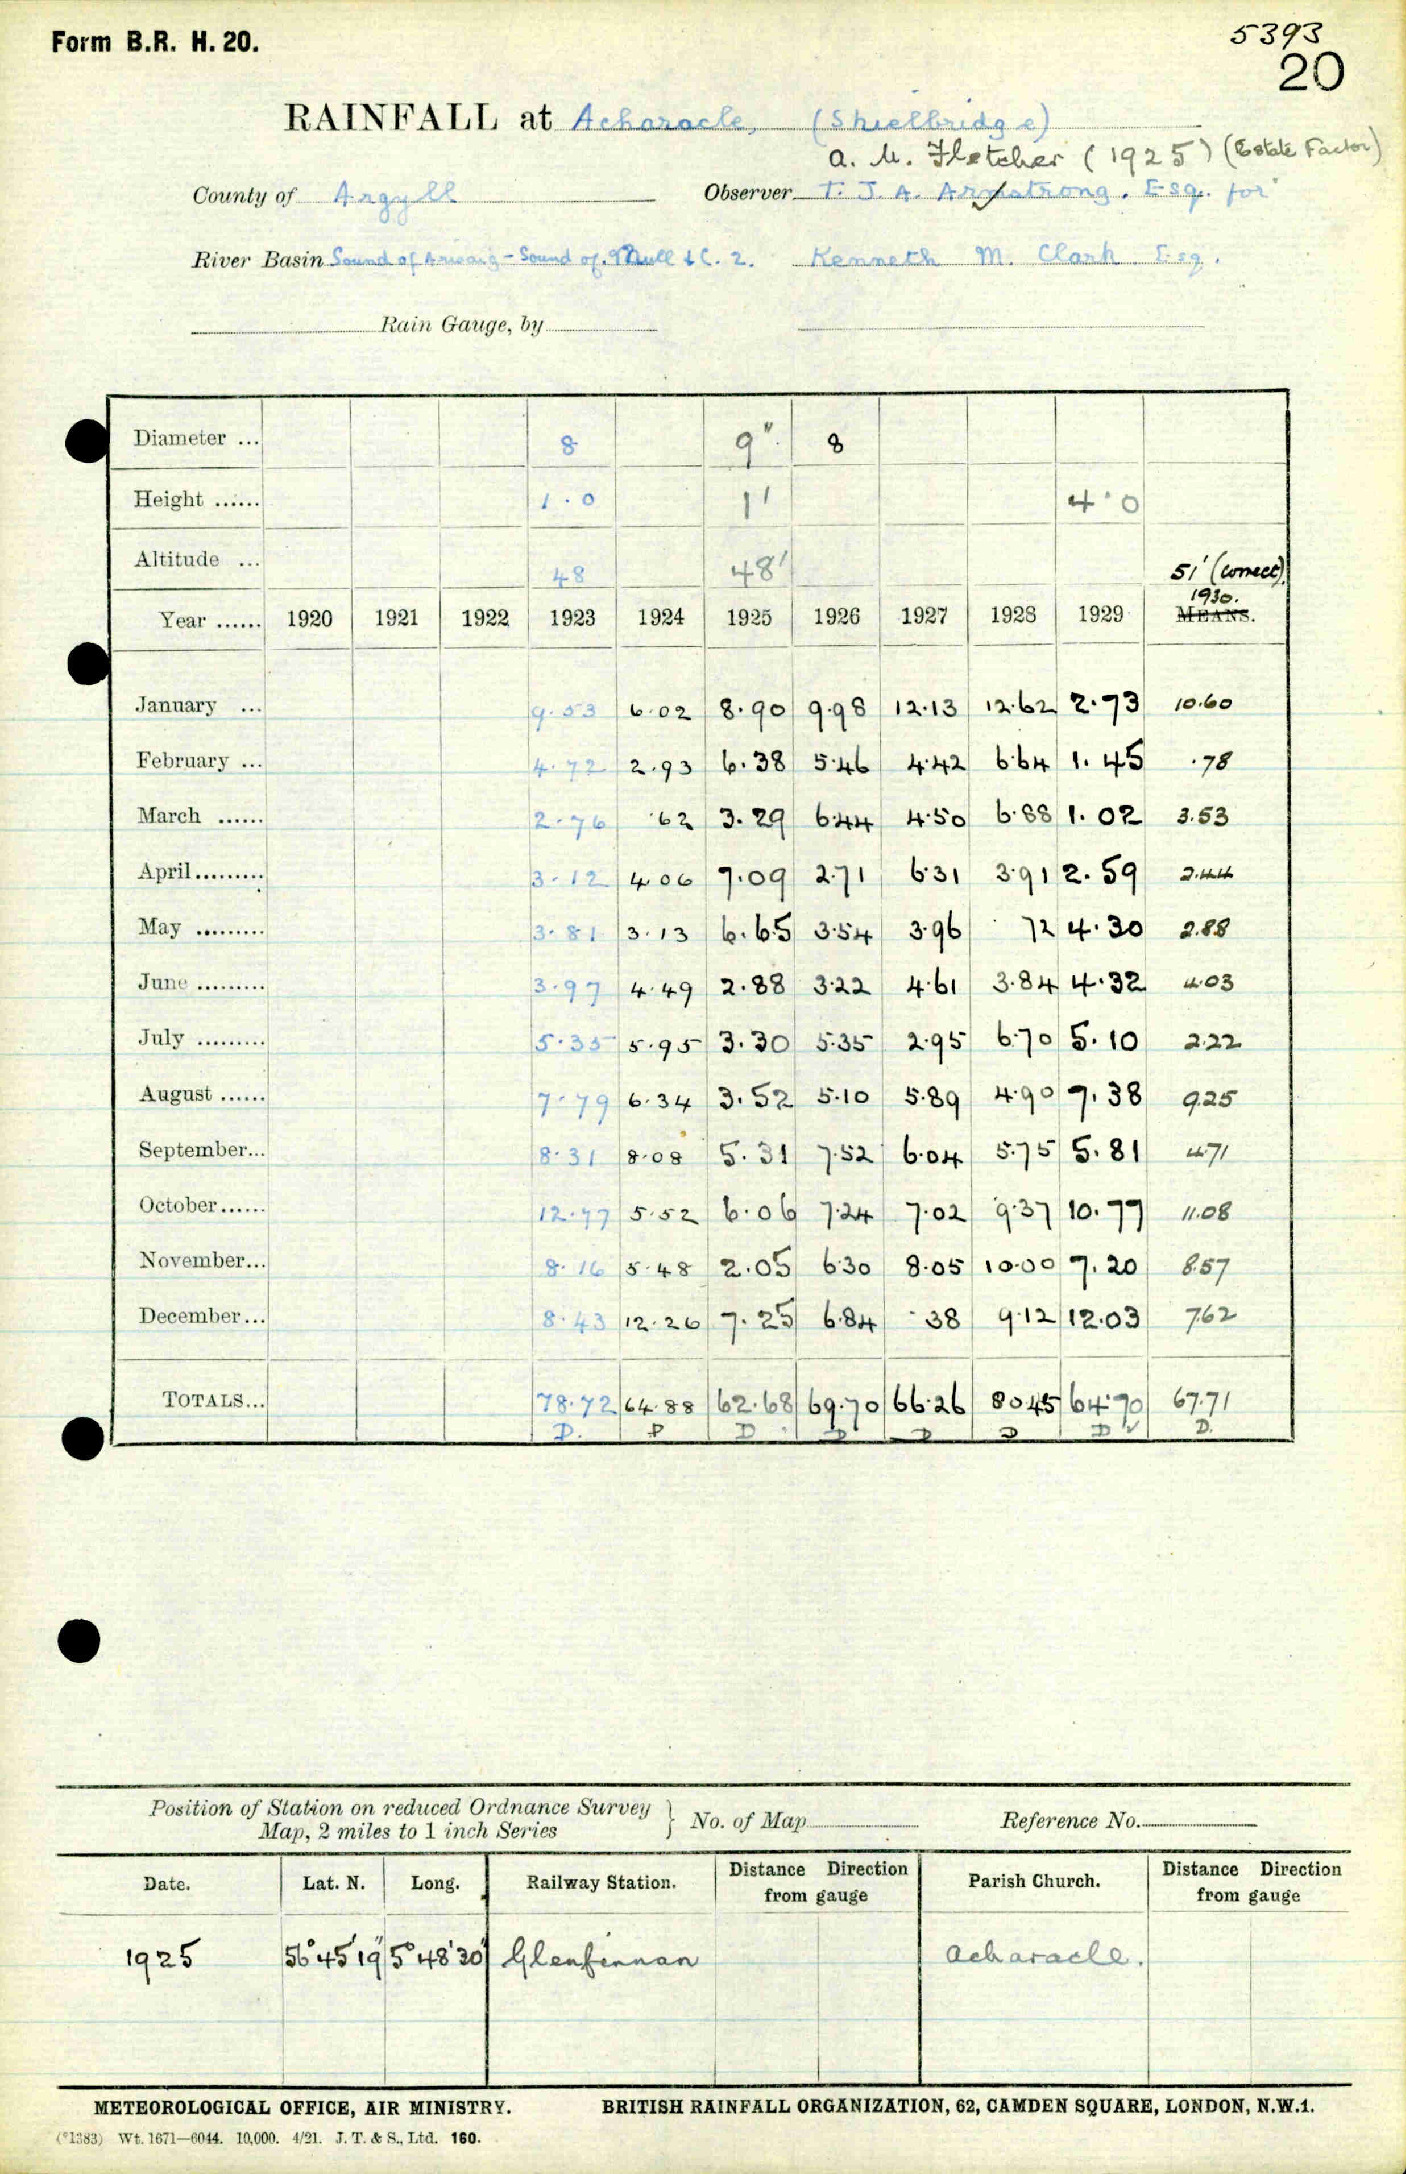 Form B.R. H. 20.
5393
20
RAINFALL at Acharacle, (Shielbridge)
A. M. Fletcher (1925) (Estate Factor)
County of Argyll Observer T. J. A. Armstrong. Esq. for
River Basin Sound of Arisaig - Sound of Mull & C. 2. Kenneth M. Clark. Esq.
Rain Gauge, by
Diameter ... 8 9" 8
Height ...... 1.0 1' 4.0
Altitude ... 48 48' 51' (correct)
1930.
Year ...... 1920 1921 1922 1923 1924 1925 1926 1927 1928 1929 MEANS.
January ... 9.53 6.02 8.90 9.98 12.13 12.62 2.73 10.60
February ... 4.72 2.93 6.38 5.46 4.42 6.64 1.45 .78
March ...... 2.76 .62 3.29 6.44 4.50 6.88 1.02 3.53
April......... 3.12 4.06 7.09 2.71 6.31 3.91 2.59 2.44
May ......... 3.81 3.13 6.65 3.54 3.96 .72 4.30 2.88
June ......... 3.97 4.49 2.88 3.22 4.61 3.84 4.32 4.03
July ......... 5.35 5.95 3.30 5.35 2.95 6.70 5.10 2.22
August ...... 7.79 6.34 3.52 5.10 5.89 4.90 7.38 9.25
September... 8.31 8.08 5.31 7.52 6.04 5.75 5.81 4.71
October...... 12.77 5.52 6.06 7.24 7.02 9.37 10.77 11.08
November... 8.16 5.48 2.05 6.30 8.05 10.00 7.20 8.57
December... 8.43 12.26 7.25 6.84 .38 9.12 12.03 7.62
TOTALS... 78.72 64.88 62.68 69.70 66.26 80.45 64.70 67.71
D. D D. D D D D ✓ D.
Position of Station on reduced Ordnance Survey
Map, 2 miles to 1 inch Series } No. of Map Reference No.
Date. Lat. N. Long. Railway Station. Distance Direction from gauge Parish Church. Distance Direction from gauge
1925 56°45'19" 5°48'30" Glenfinnan Acharacle.
METEOROLOGICAL OFFICE, AIR MINISTRY. BRITISH RAINFALL ORGANIZATION, 62, CAMDEN SQUARE, LONDON, N.W.1.
(*1383) Wt. 1671—6044. 10,000. 4/21. J. T. & S., Ltd. 160.